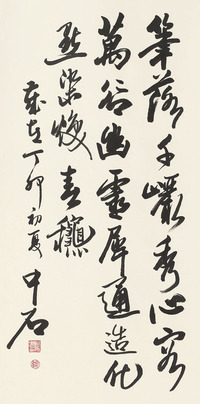 筆落千巖秀心容
萬谷幽靈犀通造化
點染煥春穠
歲在丁卯初夏
中石